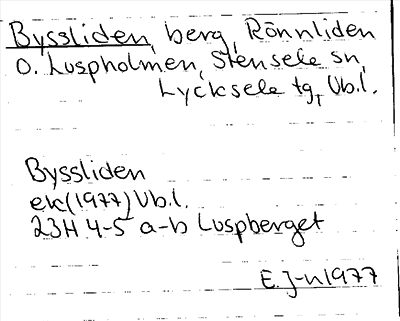 Byssliden, berg, Rönnliden
O. Luspholmen, Stensele sn,
Lycksele tg, Vb.l.
Byssliden
ek (1977) Vb.l.
23H 4-5 a-b Luspberget
E.J-n 1977